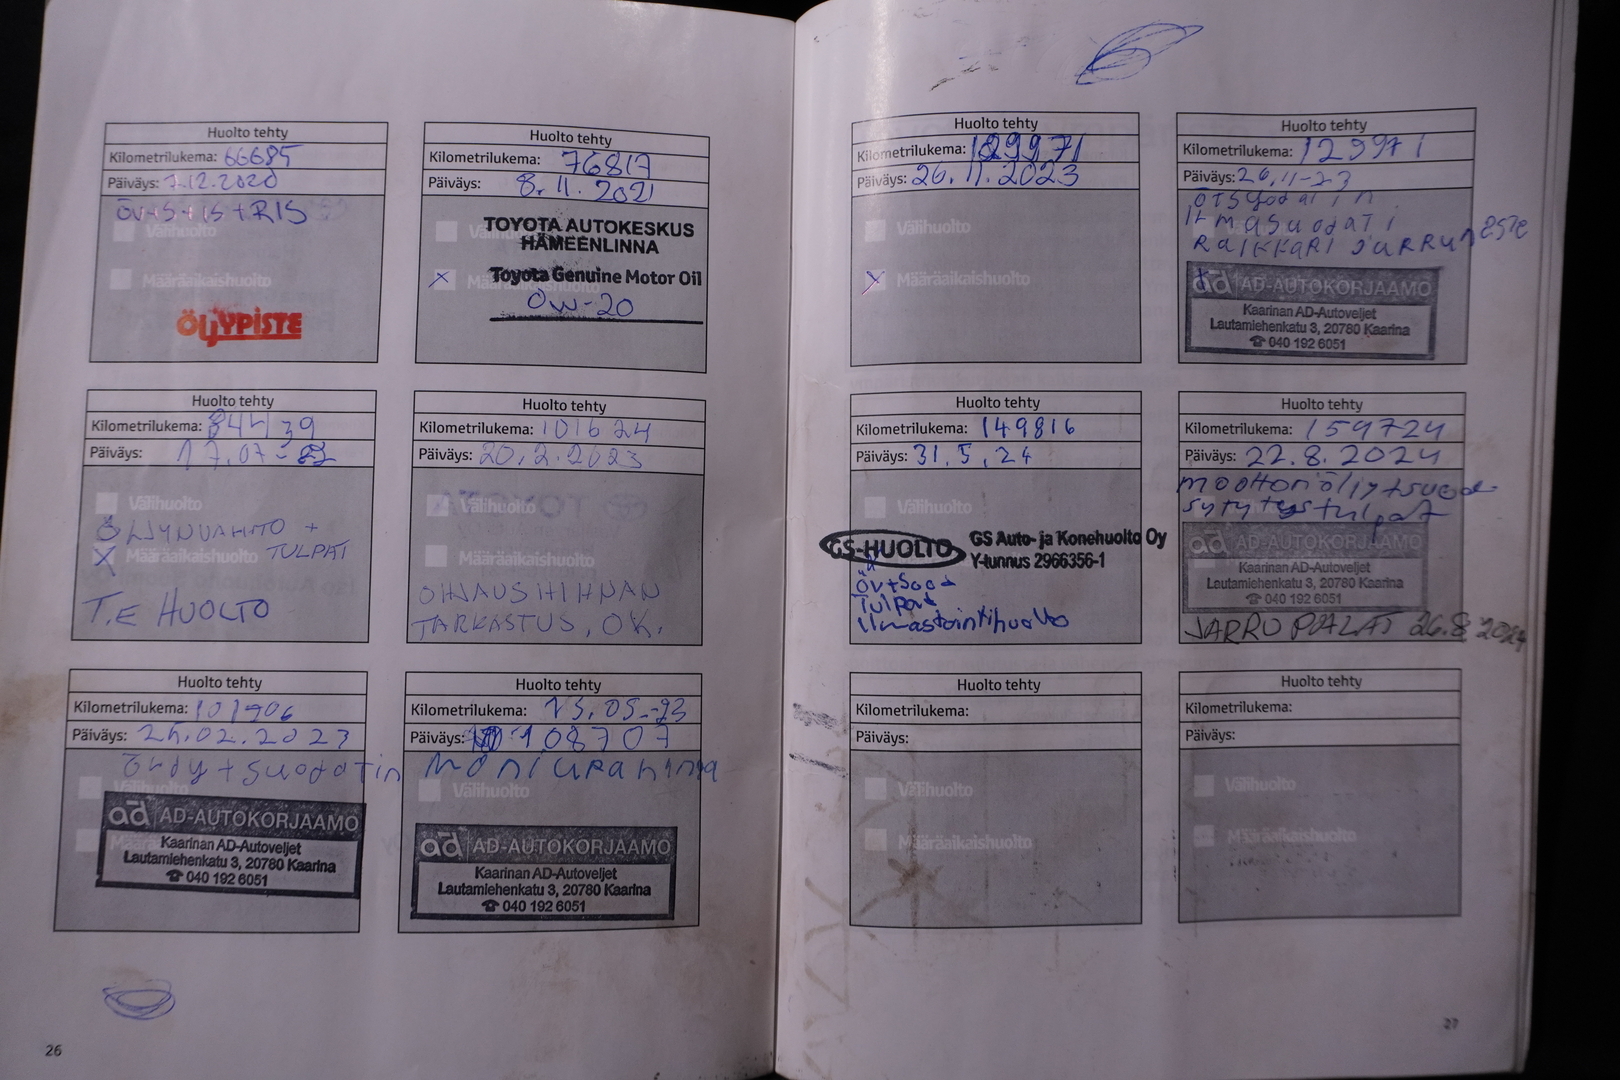 Huolto tehty
Kilometrilukema: 66685
Päiväys: 7.12.2020
öv+S+iS+RIS
Välihuolto
Määräaikaishuolto
ÖljYPISTE
Huolto tehty
Kilometrilukema: 76817
Päiväys: 8.11.2021
TOYOTA AUTOKESKUS
HÄMEENLINNA
Välihuolto
x Toyota Genuine Motor Oil
0W-20
Huolto tehty
Kilometrilukema: 84439
Päiväys: 17.07-
Välihuolto
ÖLJYNVAIHTO +
x Määräaikaishuolto TULPAT
T.E HUOLTO
Huolto tehty
Kilometrilukema: 101624
Päiväys: 20.2.2023
Välihuolto
Määräaikaishuolto
OHJAUSHIHNAN
TARKASTUS, OK.
Huolto tehty
Kilometrilukema: 101906
Päiväys: 24.02.2023
öljy + suodatin
Välihuolto
ad AD-AUTOKORJAAMO
Kaarinan AD-Autoveljet
Lautamiehenkatu 3, 20780 Kaarina
☎ 040 192 6051
Huolto tehty
Kilometrilukema: 15.05.-23
Päiväys: 108707
moniurahihna
Välihuolto
ad AD-AUTOKORJAAMO
Kaarinan AD-Autoveljet
Lautamiehenkatu 3, 20780 Kaarina
☎ 040 192 6051
26
Huolto tehty
Kilometrilukema: 129971
Päiväys: 26.11.2023
Välihuolto
x Määräaikaishuolto
Huolto tehty
Kilometrilukema: 129971
Päiväys: 26.11-23
ilmasuodati
Raikkari jarruneste
ad AD-AUTOKORJAAMO
Kaarinan AD-Autoveljet
Lautamiehenkatu 3, 20780 Kaarina
☎ 040 192 6051
Huolto tehty
Kilometrilukema: 149816
Päiväys: 31.5.24
Välihuolto
GS-HUOLTO GS Auto- ja Konehuolto Oy
Y-tunnus 2966356-1
öv+Sood
Tulpat
Ilmastointihuolto
Huolto tehty
Kilometrilukema: 159724
Päiväys: 22.8.2024
moottoriöljy+suod
sytytystulpat
ad AD-AUTOKORJAAMO
Kaarinan AD-Autoveljet
Lautamiehenkatu 3, 20780 Kaarina
☎ 040 192 6051
JARRUPALAT 26.8.2024
Huolto tehty
Kilometrilukema:
Päiväys:
Välihuolto
Määräaikaishuolto
Huolto tehty
Kilometrilukema:
Päiväys:
Välihuolto
Määräaikaishuolto
27